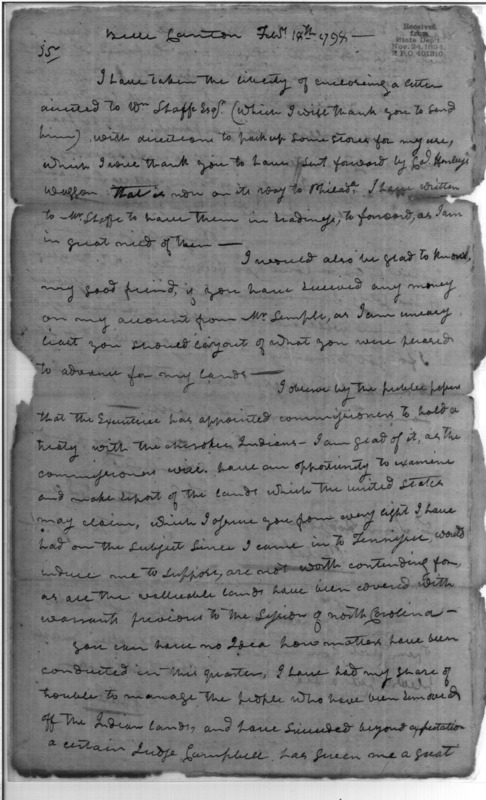 Belle Canton Feby 18th 1798 —
Received
from
State Dept.
Nov. 24, 1894.
R.P.O. 401310.
35
I have taken the liberty of enclosing a letter
directed to Wm Esqr. (which I will thank you to send
him), with directions to pack up some stores for my use,
which I will thank you to have sent forward by Col Henleys
Waggon that is now on its way to Philada. I have written
to Mr. to have them in readiness, to forward, as I am
in great need of them —
I would also be glad to know,
my good friend, if you have received any money
on my account from Mr. Semple, as I am uneasy
least you should lay out of what you were pleased
to advance for my lands —
I observe by the publick papers
that the Executive has appointed commissioners to hold a
treaty with the cherokee Indians — I am glad of it, as the
commissioners will have an opportunity to examine
and make report of the lands which the united States
may claim, which I assure you from every light I have
had on the subject since I came in to Tennessee, would
induce me to suppose, are not worth contending for,
as all the valluable lands have been covered with
warrants previous to the Session of north Carolina —
you can have no Idea how matters have been
conducted in this quarter, I have had my share of
trouble to manage the people who have been removed
off the Indian lands, and have succeeded beyond expectation
a certain Judge Campbell has given me a great